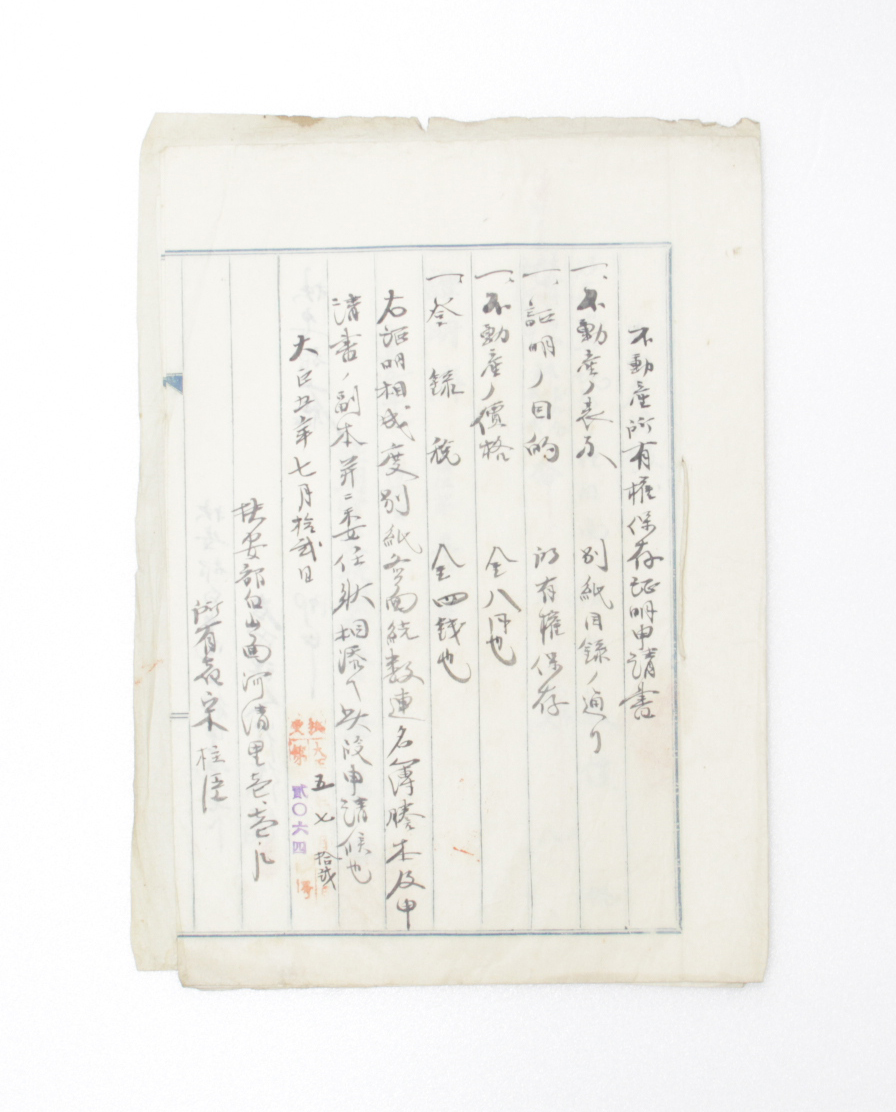 不動産所有権保存証明申請書
一、不動産ノ表示 別紙目録ノ通リ
一、証明ノ目的 所有権保存
一、不動産ノ價格 金八円也
一、登録税 金四銭也
右証明相成度別紙各面統数連名簿謄本及申
請書ノ副本并ニ委任状相添ヘ此段申請候也
大正五年七月拾弐日
五 七 拾弐
貳〇六四
扶安郡白山面河清里
所有者 宋柱臣